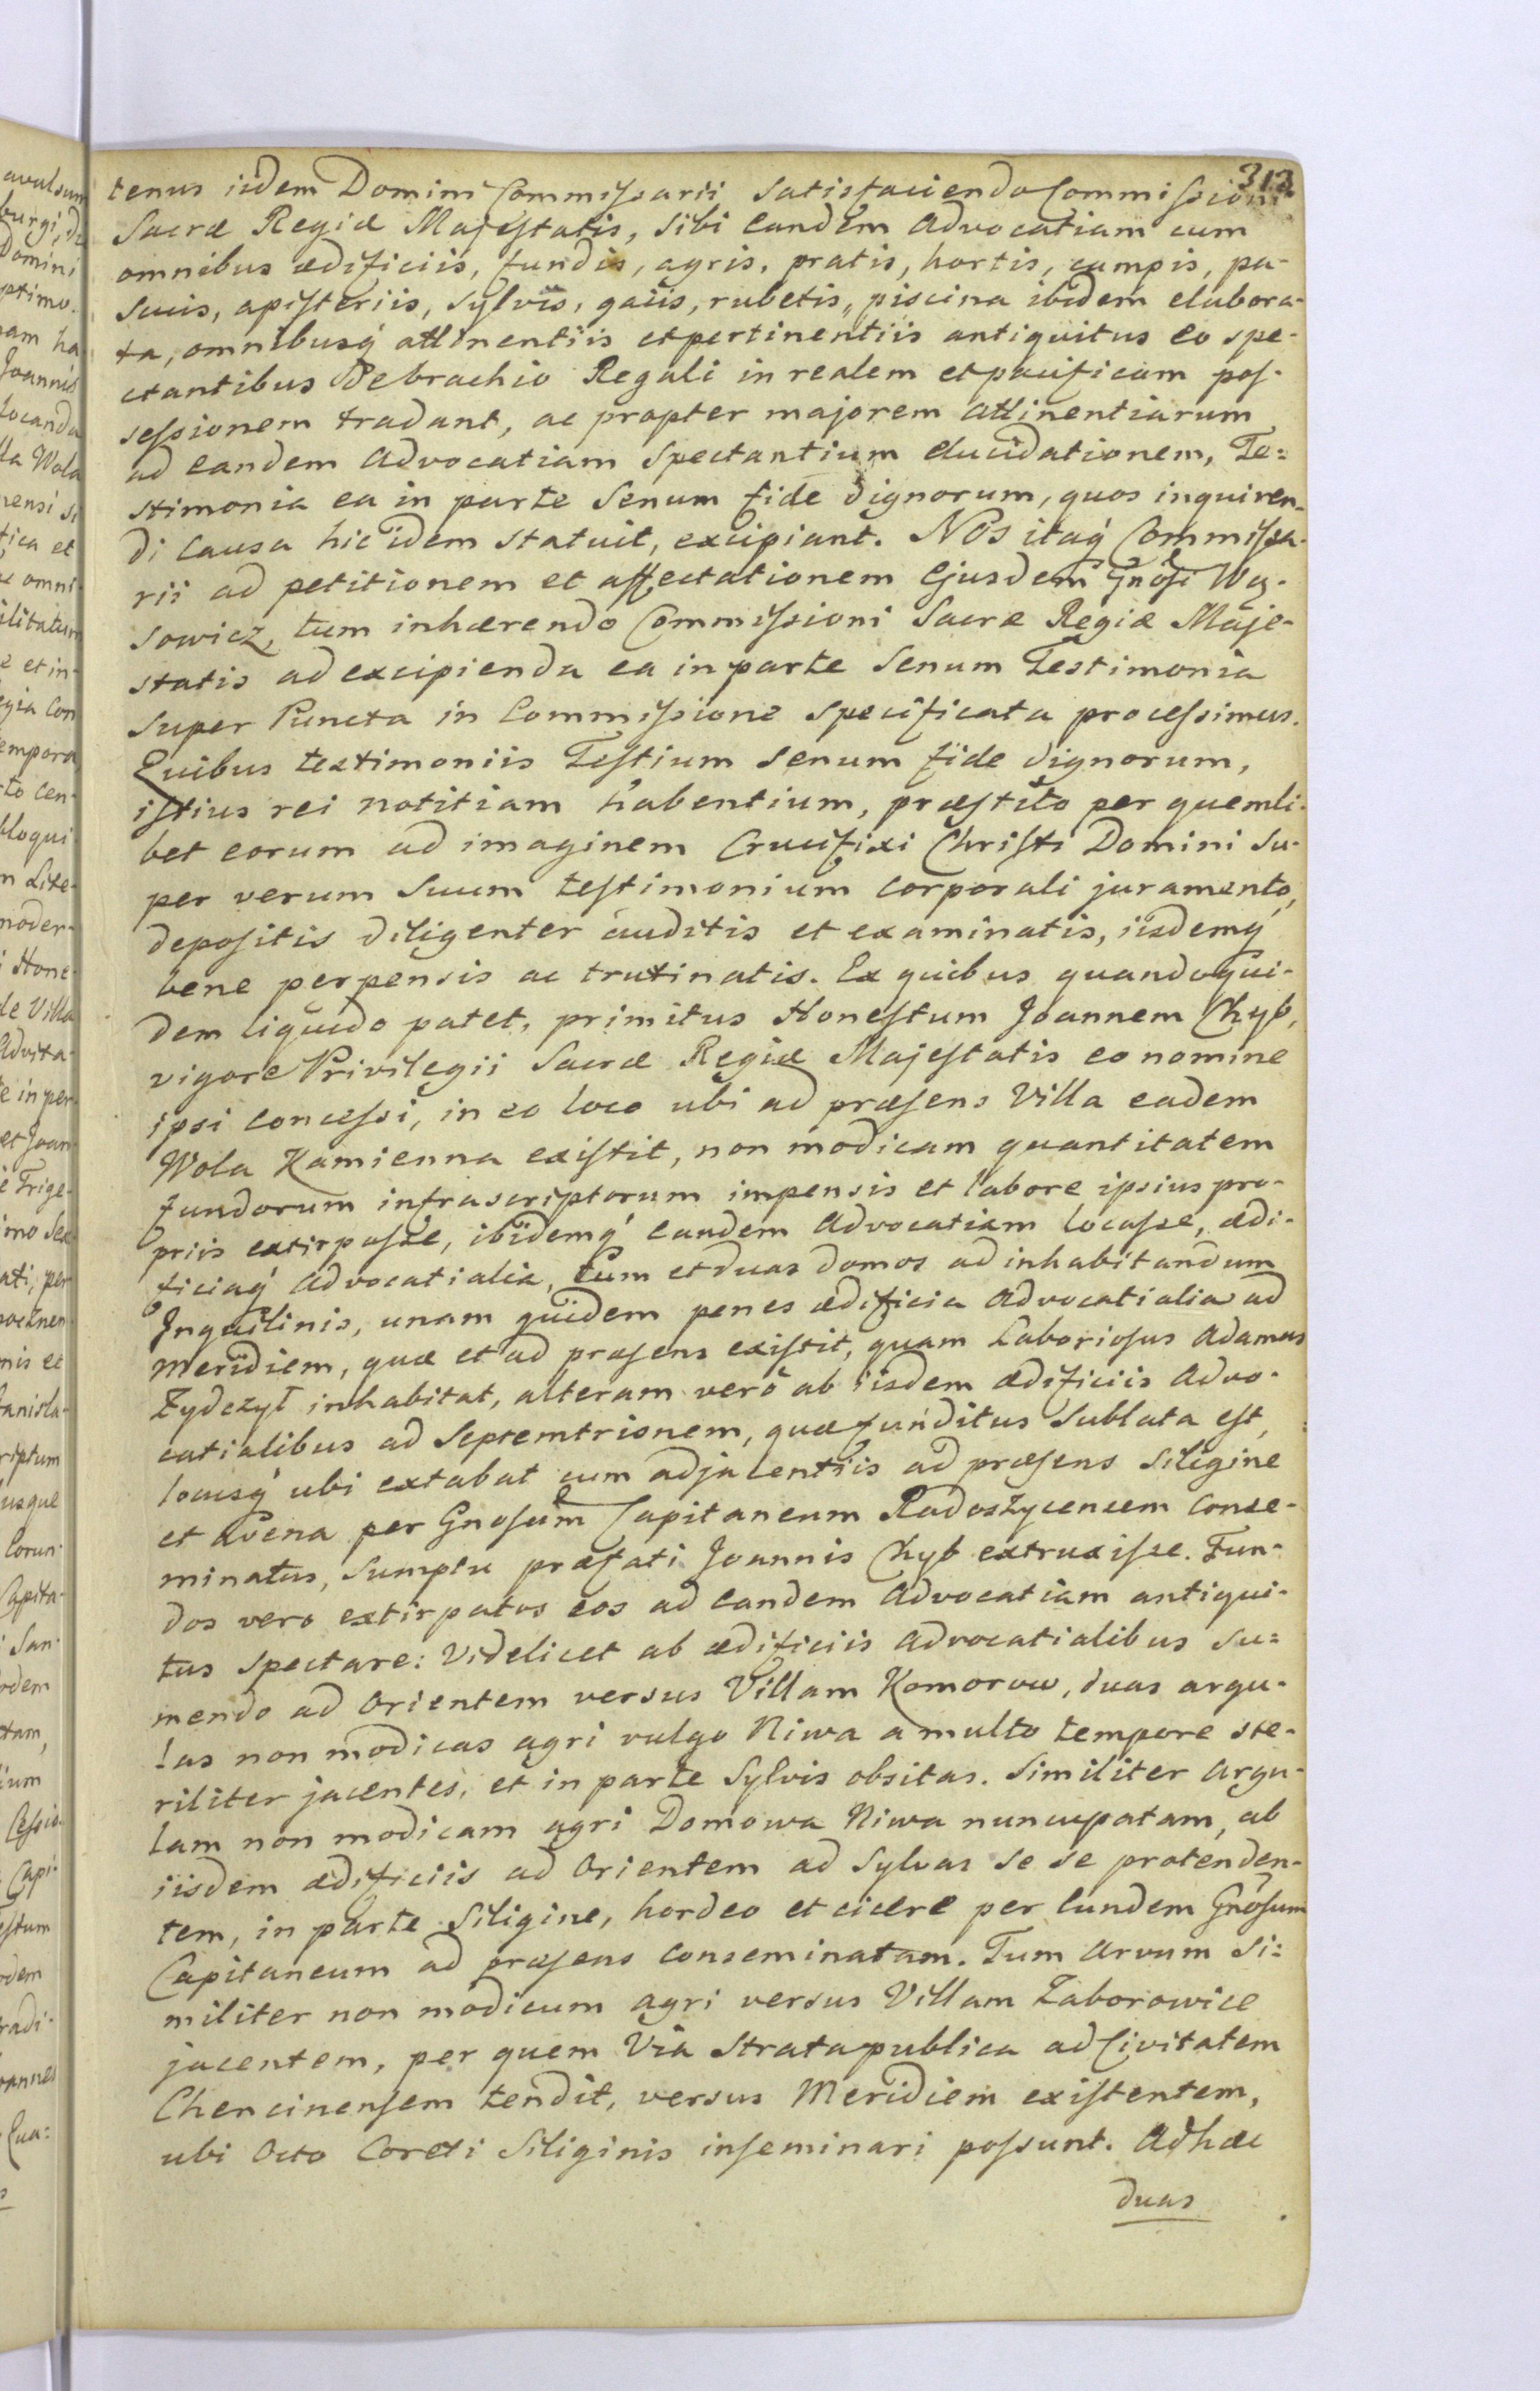 313
tenus iidem Domini Commissarii satisfaciendo Commissioni
Sacræ Regiæ Majestatis, sibi eandem Advocatiam cum
omnibus ædificiis, fundis, agris, pratis, hortis, campis, pa-
scuis, apisteriis, sylvis, gaiis, rubetis, piscina ibidem elabora-
ta, omnibusq́ attinentiis et pertinentiis antiquitus eo spe-
ctantibus de brachio Regali in realem et pacificam pos-
sessionem tradant, ac propter majorem attinentiarum
ad eandem Advocatiam spectantium elucidationem, Te=
stimonia ea in parte Senum fide dignorum, quos inquiren-
di causa hic idem statuit, excipiant. Nos itaq́ Commissa-
rii ad petitionem et affectationem ejusdem Gnosi Wą-
sowicz, tum inhærendo Commissioni Sacræ Regiæ Maje-
statis ad excipienda ea in parte Senum Testimonia
super Puncta in Commissione specificata processimus.
Quibus testimoniis Testium senum fide dignorum,
istius rei notitiam habentium, præstito per quemli-
bet eorum ad imaginem Crucifixi Christi Domini su-
per verum suum testimonium corporali juramento,
depositis diligenter auditis et examinatis, iisdemq́
bene perpensis ac trutinatis. Ex quibus quandoqui-
dem liquido patet, primitus Honestum Joannem Chyb,
vigore Privilegii Sacræ Regiæ Majestatis eo nomine
ipsi concessi, in eo loco ubi ad præsens Villa eadem
Wola Kamienna existit, non modicam quantitatem
fundorum infrascriptorum impensis et labore ipsius pro-
priis extirpasse, ibidemq́ eandem Advocatiam locasse, ædi-
ficiaq́ Advocatialia, tum et duas domos ad inhabitandum
Inquilinis, unam quidem penes ædificia Advocatialia ad
meridiem, quæ et ad præsens existit, quam Laboriosus Adamus
Zydczył inhabitat, alteram verò ab iisdem ædificiis Advo-
catialibus ad Septemtrionem, quæ funditus sublata est,
locusq́ ubi extabat cum adjacentiis ad præsens siligine
et avena per Gnosum Capitaneum Radoszycensem conse-
minatus, sumptu præfati Joannis Chyb extruxisse. Fun-
dos vero extirpatos eos ad eandem Advocatiam antiqui-
tus spectare: Videlicet ab ædificiis Advocatialibus su=
mendo ad Orientem versus Villam Komorow, duas argu-
las non modicas agri vulgo Niwa a multo tempore ste-
riliter jacentes, et in parte Sylvis obsitas. Similiter argu-
lam non modicam agri Domowa Niwa nuncupatam, ab
iisdem ædificiis ad Orientem ad Sylvas se se protenden-
tem, in parte siligine, hordeo et cicere per eundem Gnosum
Capitaneum ad præsens conseminatam. Tum Arvum si=
militer non modicum agri versus Villam Zaborowice
jacentem, per quem Via Strata publica ad Civitatem
Chencinensem tendit, versus Meridiem existentem,
ubi Octo Coreti Siliginis inseminari possunt. Adhæc
duas